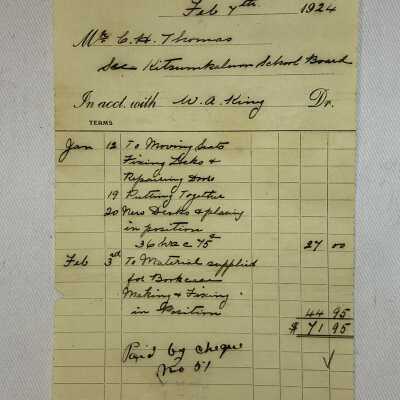 Feb 7th 1924
Mr C. H. Thomas
Sec Kitsumkalum School Board
In acct. with W. A. King Dr.
TERMS
Jan 12 To Moving Seats
Fixing Locks &
Repairing Doors
19 Putting Together
20 New Desks & placing
in position
36 hrs @ 75¢ 27 00
Feb 3rd To Material supplied
for Bookcase
Making & Fixing
in Position 44 95
$ 71 95
Paid by cheque
No 51